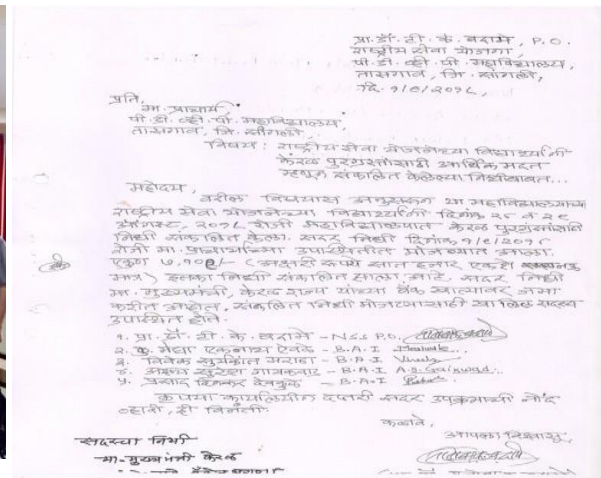 प्रा. डॉ. टी. के. बदामे, P.O.
राष्ट्रीय सेवा योजना,
पी. डी. व्ही. पी. महाविद्यालय,
तासगाव, जि. सांगली,
दि. १/९/२०१८,
प्रति,
मा. प्राचार्य,
पी. डी. व्ही. पी. महाविद्यालय,
तासगाव, जि. सांगली.
विषय : राष्ट्रीय सेवा योजनेच्या विद्यार्थ्यांनी
केरळ पुरग्रस्तांसाठी आर्थिक मदत
म्हणून संकलित केलेल्या निधीबाबत...
महोदय,
वरील विषयास अनुसरून या महाविद्यालयाच्या
राष्ट्रीय सेवा योजनेच्या विद्यार्थ्यांनी दिनांक २८ व २९
ऑगस्ट, २०१८ रोजी महाविद्यालयात केरळ पुरग्रस्तांसाठी
निधी संकलित केला. सदर निधी दिनांक १/९/२०१८
रोजी मा. प्राचार्यांच्या उपस्थितीत मोजण्यात आला.
एकूण ७,१०१/- (अक्षरी रूपये सात हजार एकशे
मात्र) इतका निधी संकलित झाला आहे. सदर निधी
मा. मुख्यमंत्री, केरळ राज्य यांच्या बँक खात्यावर जमा
करीत आहोत. संकलित निधी मोजण्यासाठी खालील सदस्य
उपस्थित होते.
१. प्रा. डॉ. टी. के. बदामे - NSS P.O.
२. कु. मेघा एकनाथ - B.A.I
३. विवेक सूर्यकांत - B.A.I
४. अक्षय सुरेश गायकवाड - B.A.I A.S. Gaikwad
५. प्रसाद दिनकर - B.A.I
कृपया कार्यालयीन दप्तरी सदर उपक्रमाची नोंद
व्हावी, ही विनंती.
कळावे,
आपला विश्वासू,
सदरचा निधी
मा. मुख्यमंत्री केरळ